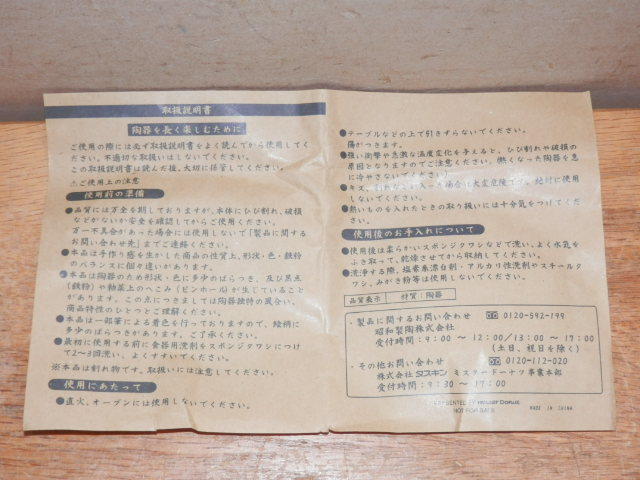 取扱説明書
陶器を長く楽しむために
ご使用の際には必ず取扱説明書をよく読んでから使用してく
ださい。不適切な取扱いはしないでください。
この取扱説明書は読んだ後、大切に保管してください。
⚠ご使用上の注意
使用前の準備
●品質には万全を期しておりますが、本体にひび割れ、破損
などがないか安全を確認してからご使用ください。
万一不具合があった場合には使用しないで「製品に関する
お問い合わせ先」までご連絡ください。
●本品は手作り感を生かした商品の性質上、形状・色・鉄粉
のバランスに個々違いがあります。
●本品は陶器のため形状・色に多少のばらつき、及び黒点
(鉄粉)や釉薬上のへこみ(ピンホール)が生じていること
があります。この点につきましては陶器独特の風合い、
商品特性のひとつと理解ください。
●本品は一部筆による着色を行っておりますので、絵柄に
多少のばらつきがあります。ご了承ください。
●最初に使用する前に食器用洗剤をスポンジタワシにつけ
て2〜3回洗い、よくすすいでください。
※本品は割れ物です。取扱いには注意してください。
使用にあたって
●直火、オーブンには使用しないでください。
●テーブルなどの上で引きずらないでください。
傷がつきます。
●強い衝撃や急激な温度変化を与えると、ひび割れや破損の
原因となりますのでご注意ください。(熱くなった陶器を急
に冷やさないでください)
●キズ、ひび割れが入った場合は大変危険です。絶対に使用
しないでください。
●熱いものを入れたときの取り扱いには十分気をつけてくだ
さい。
使用後のお手入れについて
●使用後は柔らかいスポンジタワシなどで洗い、よく水気を
ふき取って、乾燥させてから収納してください。
●洗浄する際、塩素系漂白剤・アルカリ性洗剤やスチールタ
ワシ、みがき粉等は使用しないでください。
品質表示 材質：陶器
・製品に関するお問い合わせ 0120-592-199
昭和製陶株式会社
受付時間：9：00 〜 12：00／13：00 〜 17：00
(土日、祝日を除く)
・その他お問い合わせ 0120-112-020
株式会社 ダスキン ミスタードーナツ事業本部
受付時間：9：30 〜 17：00
PRESENTED BY MISTER DONUT
NOT FOR SALE
MADE IN CHINA